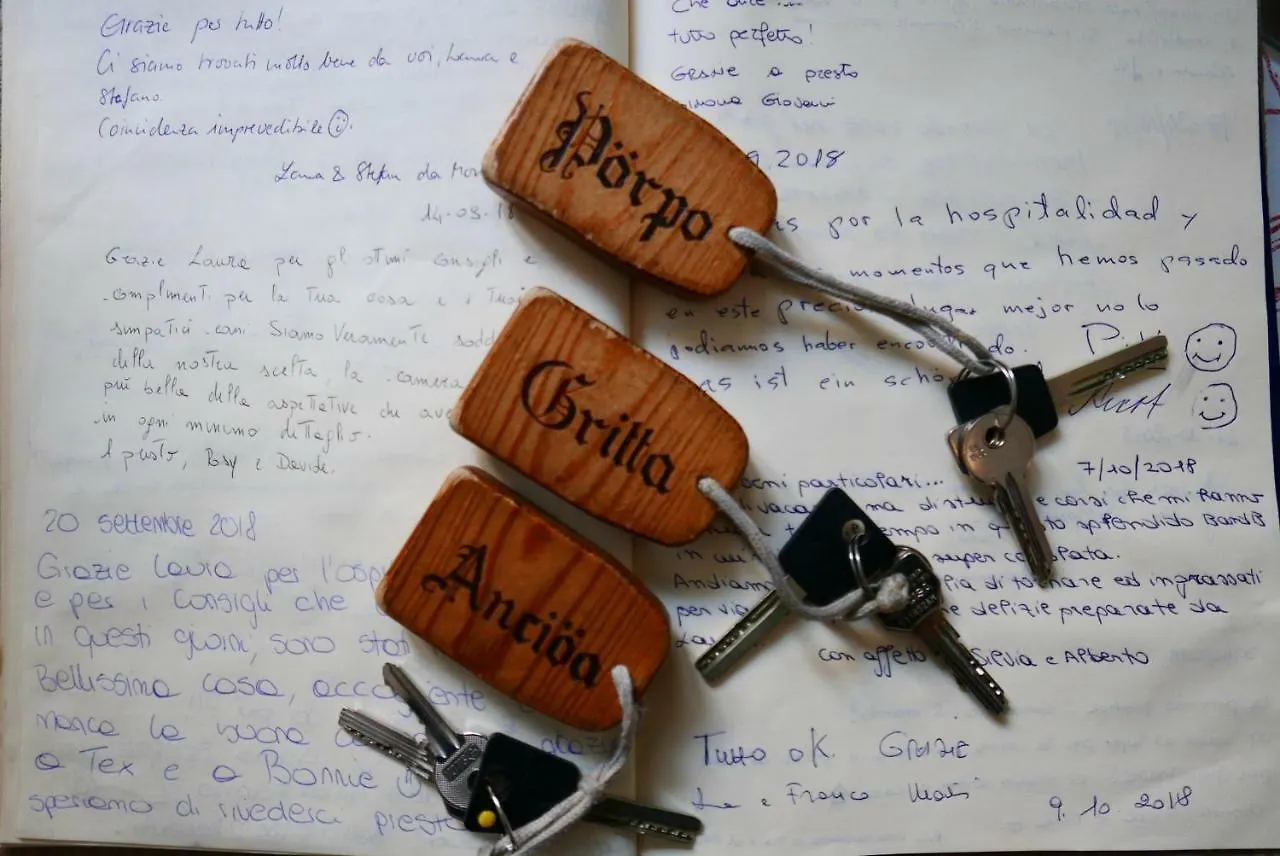 Grazie per tutto!
Ci siamo trovati molto bene da voi, Laura e
Stefano.
Coincidenza imprevedibile
& Stefan da
14.09.18
Grazie Laura per gli ottimi consigli e
complimenti per la Tua casa e i Tuoi
simpatici cani. Siamo Veramente sodd
della nostra scelta, la camera
più bella delle aspettative che ave
in ogni minimo dettaglio.
A presto, Rosy e Davide.
20 settembre 2018
Grazie Laura per l'osp
e per i consigli che
in questi giorni, sono stat
Bellissima casa, acco ente
a Tex e a Bonnie
speriamo di rivederci presto
Pörpo
Gritta
Anciöa
Che
tutto perfetto!
GRAZIE a presto
Giovanni
9.2018
as por la hospitalidad y
momentos que hemos pasado
en este precio lugar mejor no lo
podiamos haber encont do.
as ist ein schö
7/10/2018
ogni particolari...
vaca ma di e corsi che mi hanno
tempo in q to splendido BandB
in cu super co lata.
Andiam di tornare ed ingrassati
per via e delizie preparate da
Lau
con affetto Silvia e Alberto
Tutto ok. Grazie
e Franco
9.10.2018